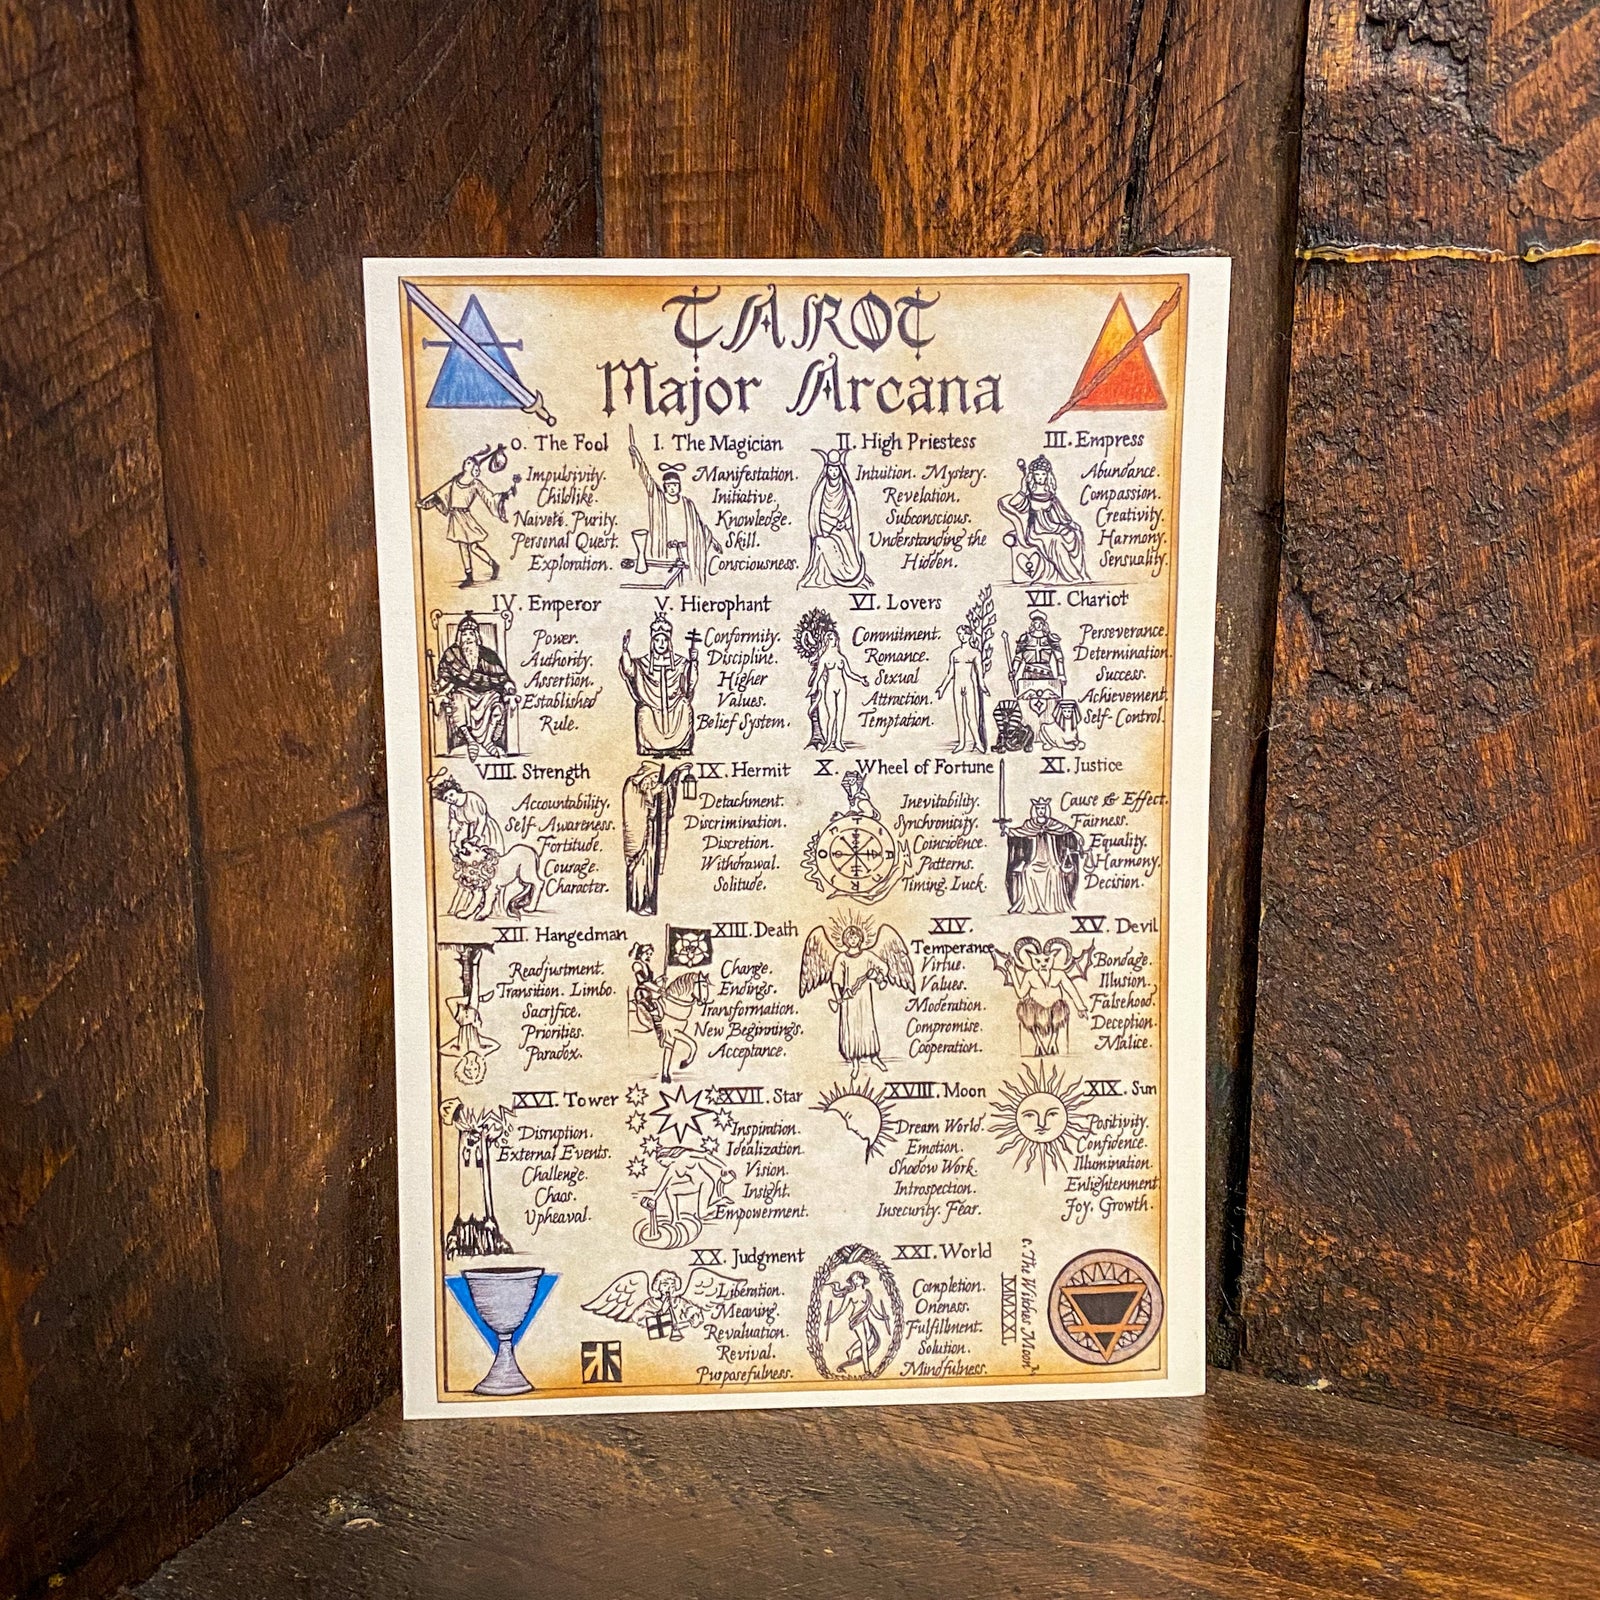 TAROT
Major Arcana
0. The Fool
Impulsivity.
Childlike.
Naiveté. Purity.
Personal Quest.
Exploration.
I. The Magician
Manifestation.
Initiative.
Knowledge.
Skill.
Consciousness.
II. High Priestess
Intuition. Mystery.
Revelation.
Subconscious.
Understanding the
Hidden.
III. Empress
Abundance.
Compassion.
Creativity.
Harmony.
Sensuality.
IV. Emperor
Power.
Authority.
Assertion.
Established
Rule.
V. Hierophant
Conformity.
Discipline.
Higher
Values.
Belief System.
VI. Lovers
Commitment.
Romance.
Sexual
Attraction.
Temptation.
VII. Chariot
Perseverance.
Determination.
Success.
Achievement.
Self-Control.
VIII. Strength
Accountability.
Self-Awareness.
Fortitude.
Courage.
Character.
IX. Hermit
Detachment.
Discrimination.
Discretion.
Withdrawal.
Solitude.
X. Wheel of Fortune
Inevitability.
Synchronicity.
Coincidence.
Patterns.
Timing. Luck.
T
A
R
O
XI. Justice
Cause & Effect.
Fairness.
Equality.
Harmony.
Decision.
XII. Hangedman
Readjustment.
Transition. Limbo.
Sacrifice.
Priorities.
Paradox.
XIII. Death
Change.
Endings.
Transformation.
New Beginnings.
Acceptance.
XIV.
Temperance
Virtue.
Values.
Moderation.
Compromise.
Cooperation.
XV. Devil
Bondage.
Illusion.
Falsehood.
Deception.
Malice.
XVI. Tower
Disruption.
External Events.
Challenge.
Chaos.
Upheaval.
XVII. Star
Inspiration.
Idealization.
Vision.
Insight.
Empowerment.
XVIII. Moon
Dream World.
Emotion.
Shadow Work.
Introspection.
Insecurity. Fear.
XIX. Sun
Positivity.
Confidence.
Illumination.
Enlightenment.
Joy. Growth.
XX. Judgment
Liberation.
Meaning.
Revaluation.
Revival.
Purposefulness.
XXI. World
Completion.
Oneness.
Fulfillment.
Solution.
Mindfulness.
c. The Witches Moon
MMXXI